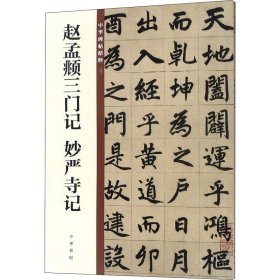 赵孟頫三门记 妙严寺记
中华碑帖精粹
中华书局
天地闔闢運乎鴻樞
而乾坤為之戶日月
出入經乎黄道而卯
酉為之門是故建設